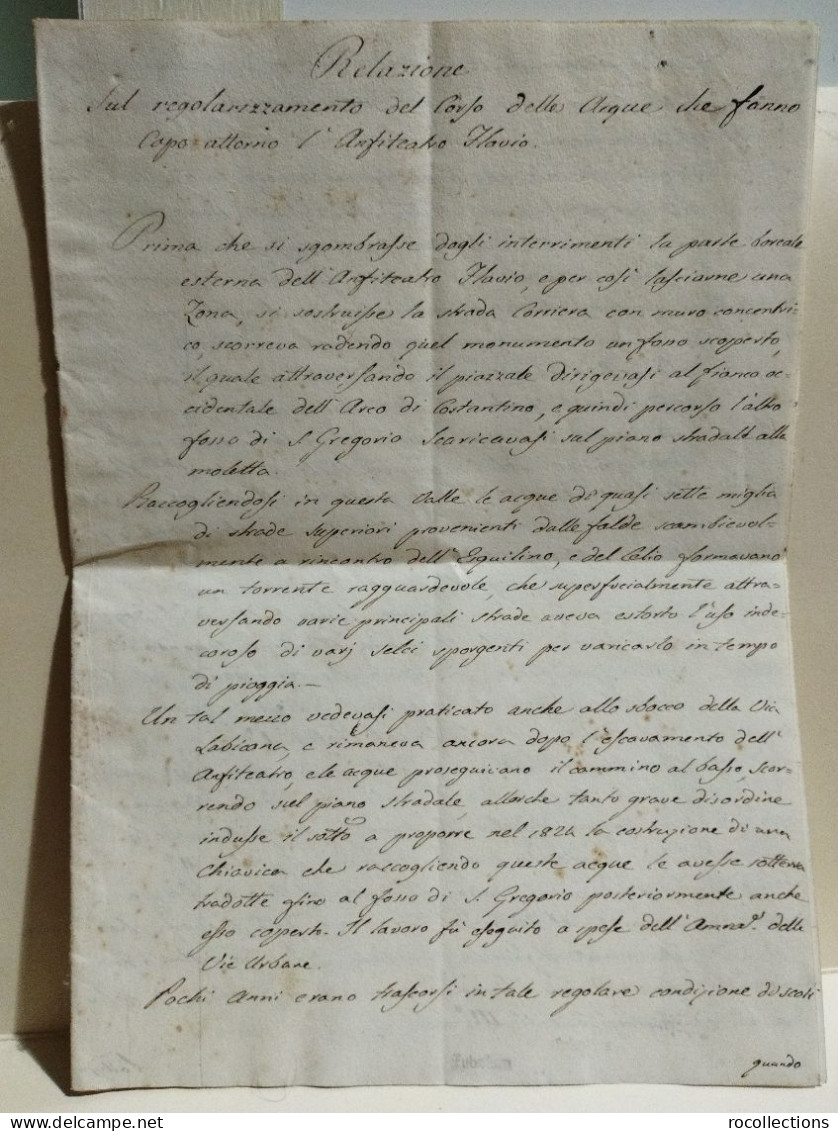 Relazione
Sul regolarizzamento del Corso delle Acque che fanno
Capo attorno l'Anfiteatro Flavio.
Prima che si sgombrasse dagli interrimenti la parte boreale
esterna dell'Anfiteatro Flavio, e per così lasciarne una
Zona, si sostruisse la strada Corriera con muro concentri=
co, scorreva radendo quel monumento un fosso scoperto,
il quale attraversando il piazzale dirigevasi al fianco oc=
cidentale dell'Arco di Costantino, e quindi percorso l'altro
fosso di S. Gregorio Scaricavasi sul piano stradale alla
moletta.
Raccogliendosi in questa Valle le acque di quasi sette miglia
di strade superiori provenienti dalle falde scambievol=
mente a rincontro dell'Esquilino, e del Celio formavano
un torrente ragguardevole, che superficialmente attra=
versando varie principali strade aveva estorto l'uso inde=
coroso di varj selci sporgenti per varicarlo in tempo
di pioggia.—
Un tal mezzo vedevasi praticato anche allo sbocco della Via
Labicana, e rimaneva ancora dopo l'escavamento dell'
Anfiteatro, e le acque proseguivano il cammino al basso, scor=
rendo sul piano stradale, allorche tanto grave disordine
indusse il sotto a proporre nel 1824 la costruzione di una
Chiavica che raccogliendo queste acque le avesse sotterra
tradotte fino al fosso di S. Gregorio posteriormente anche
esso coperto. Il lavoro fù eseguito a spese dell'Amna. delle
Vie Urbane.
Pochi Anni erano trascorsi in tale regolare condizione di scoli
quando
rocollections